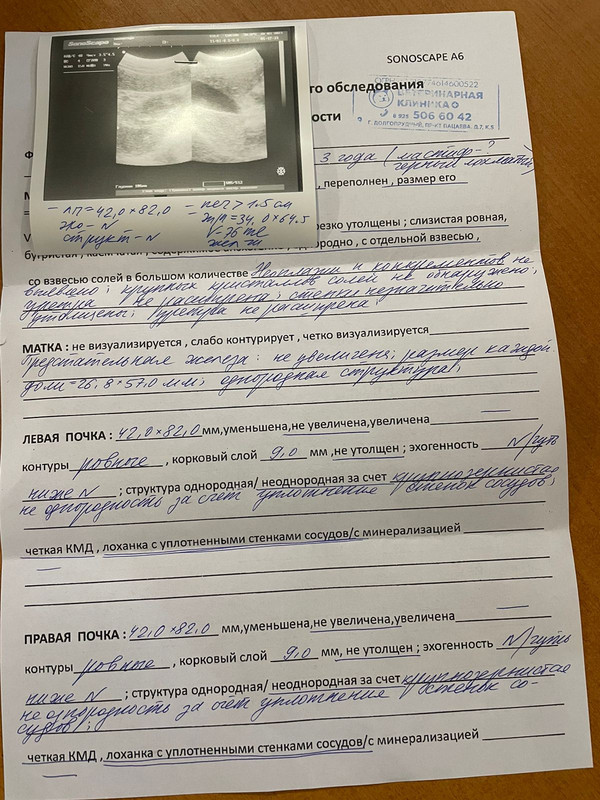 SONOSCAPE A6
SonoScape
го обследования
ости
74614600522
ВЕТЕРИНАРНАЯ
КЛИНИКА
8 925 506 60 42
Г. ДОЛГОПРУДНЫЙ, ПР-КТ ПАЦАЕВА, Д.7, К.5
3 года (мастиф-?
, переполнен , размер его
- ЛП=42,0×82,0
эхо-N
структ-N
V-76
резко утолщены ; слизистая ровная,
бугристая
однородно , с отдельной взвесью ,
со взвесью солей в большом количестве Неоплазии и конкрементов не
крупных кристаллов солей не обнаружено;
не расширена; стенки незначительно
утолщены; Уретра не расширена;
МАТКА : не визуализируется , слабо контурирует , четко визуализируется
Предстательная железа: не увеличена; размер каждой
доли=26,8×57,0 мм; однородная структура;
ЛЕВАЯ ПОЧКА : 42,0×82,0 мм,уменьшена,не увеличена,увеличена
контуры ровные , корковый слой 9,0 мм ,не утолщен ; эхогенность N/чуть
ниже N ; структура однородная/ неоднородная за счет крупнозернистая
не однородность за счет уплотнение стенок сосудов;
четкая КМД , лоханка с уплотненными стенками сосудов/с минерализацией
ПРАВАЯ ПОЧКА : 42,0×82,0 мм,уменьшена,не увеличена,увеличена
контуры ровные , корковый слой 9,0 мм, не утолщен ; эхогенность N/чуть
ниже N ; структура однородная/ неоднородная за счет крупнозернистая
не однородность за счет уплотнение стенок со-
судов;
четкая КМД , лоханка с уплотненными стенками сосудов/с минерализацией